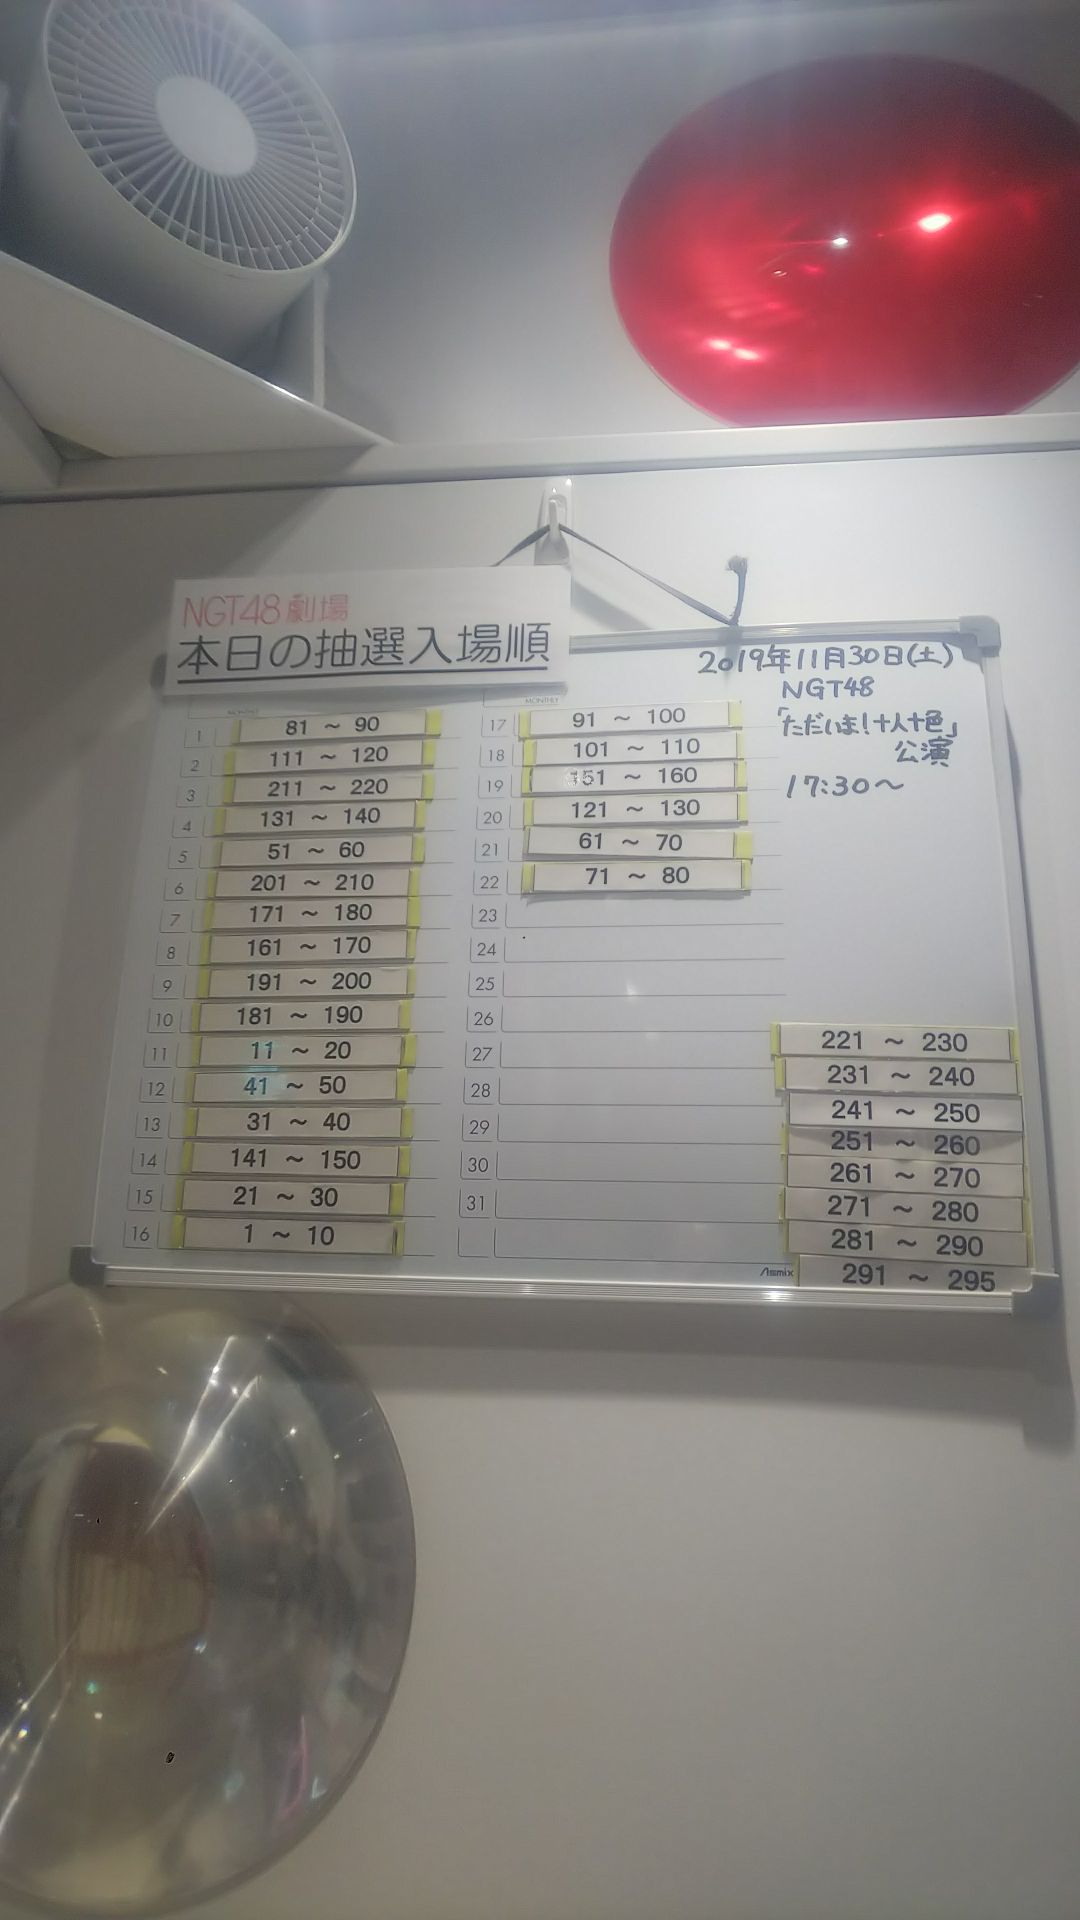 NGT48劇場
本日の抽選入場順
2019年11月30日(土)
NGT48
「ただいま！十人十色」
公演
17:30～
MONTHLY
1 81 ～ 90
2 111 ～ 120
3 211 ～ 220
4 131 ～ 140
5 51 ～ 60
6 201 ～ 210
7 171 ～ 180
8 161 ～ 170
9 191 ～ 200
10 181 ～ 190
11 11 ～ 20
12 41 ～ 50
13 31 ～ 40
14 141 ～ 150
15 21 ～ 30
16 1 ～ 10
MONTHLY
17 91 ～ 100
18 101 ～ 110
19 151 ～ 160
20 121 ～ 130
21 61 ～ 70
22 71 ～ 80
23
24
25
26
27
28
29
30
31
221 ～ 230
231 ～ 240
241 ～ 250
251 ～ 260
261 ～ 270
271 ～ 280
281 ～ 290
291 ～ 295
Asmix